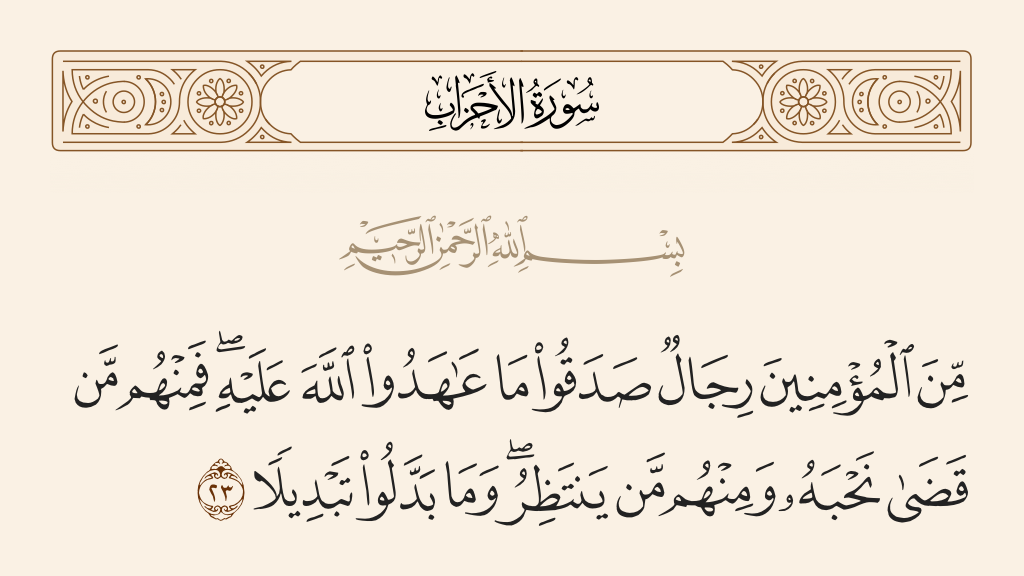 سُورَةُ الأَحْزَابِ
بِسْمِ ٱللَّهِ ٱلرَّحْمَٰنِ ٱلرَّحِيمِ
مِّنَ ٱلْمُؤْمِنِينَ رِجَالٌ صَدَقُوا۟ مَا عَـٰهَدُوا۟ ٱللَّهَ عَلَيْهِ ۖ فَمِنْهُم مَّن
قَضَىٰ نَحْبَهُۥ وَمِنْهُم مَّن يَنتَظِرُ ۖ وَمَا بَدَّلُوا۟ تَبْدِيلًا ٢٣